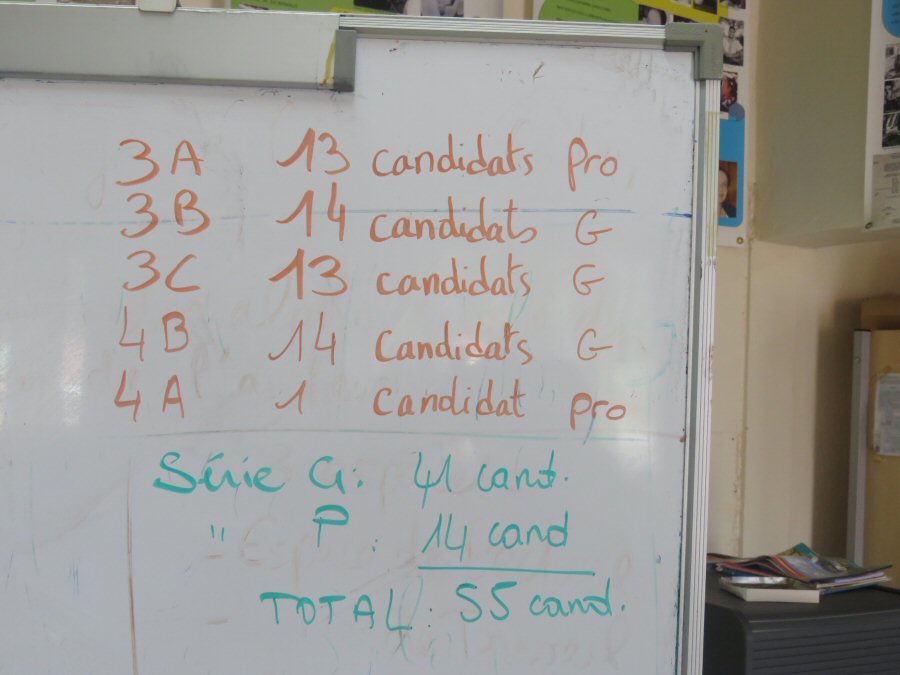 3A 13 candidats pro
3B 14 candidats G
3C 13 candidats G
4B 14 candidats G
4A 1 candidat pro
Série G: 41 cand.
" P : 14 cand
TOTAL : 55 cand.